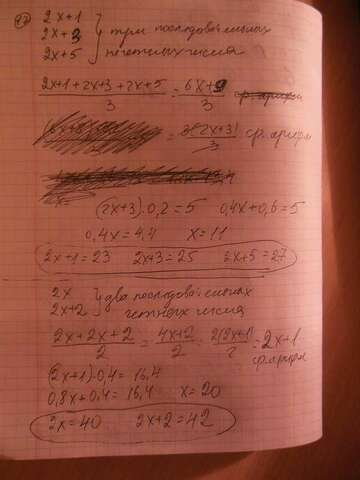 2x+1
2x+3 } три последовательных
2x+5 нечетных числа
(2x+1+2x+3+2x+5)/3 = (6x+9)/3
= 3(2x+3)/3 ср. арифм
(2x+3)·0,2=5 0,4x+0,6=5
0,4x=4,4 x=11
2x+1=23 2x+3=25 2x+5=27
2x } два последовательных
2x+2 четных числа
(2x+2x+2)/2 = (4x+2)/2 = 2(2x+1)/2 = 2x+1
ср. арифм
(2x+1)·0,4=16,4
0,8x+0,4=16,4 x=20
2x=40 2x+2=42